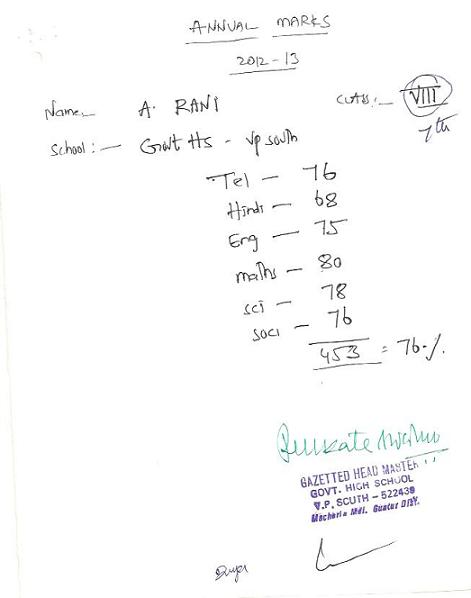 ANNUAL MARKS
2012-13
Name:- A. RANI CLASS:- VIII
School:- Govt HS - vp south 7th
Tel - 76
Hindi - 68
Eng - 75
maths - 80
sci - 78
soci - 76
453 = 76%
GAZETTED HEAD MASTER
GOVT. HIGH SCHOOL
V.P. SOUTH - 522439
Macharla Mdl. Guntur DIST.